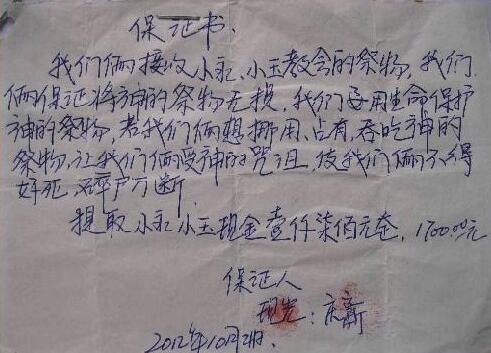 保证书、
我们俩接收小永、小玉教会的祭物,我们
俩保证将神的祭物无损,我们要用生命保护
神的祭物,若我们俩想挪用、占有、吞吃神的
祭物,让我们俩受神的咒诅,使我们俩不得
好死,碎尸万断
提取小永小玉现金壹仟柒佰元在,1700.00元
保证人
：庆新
2012年10月2日.